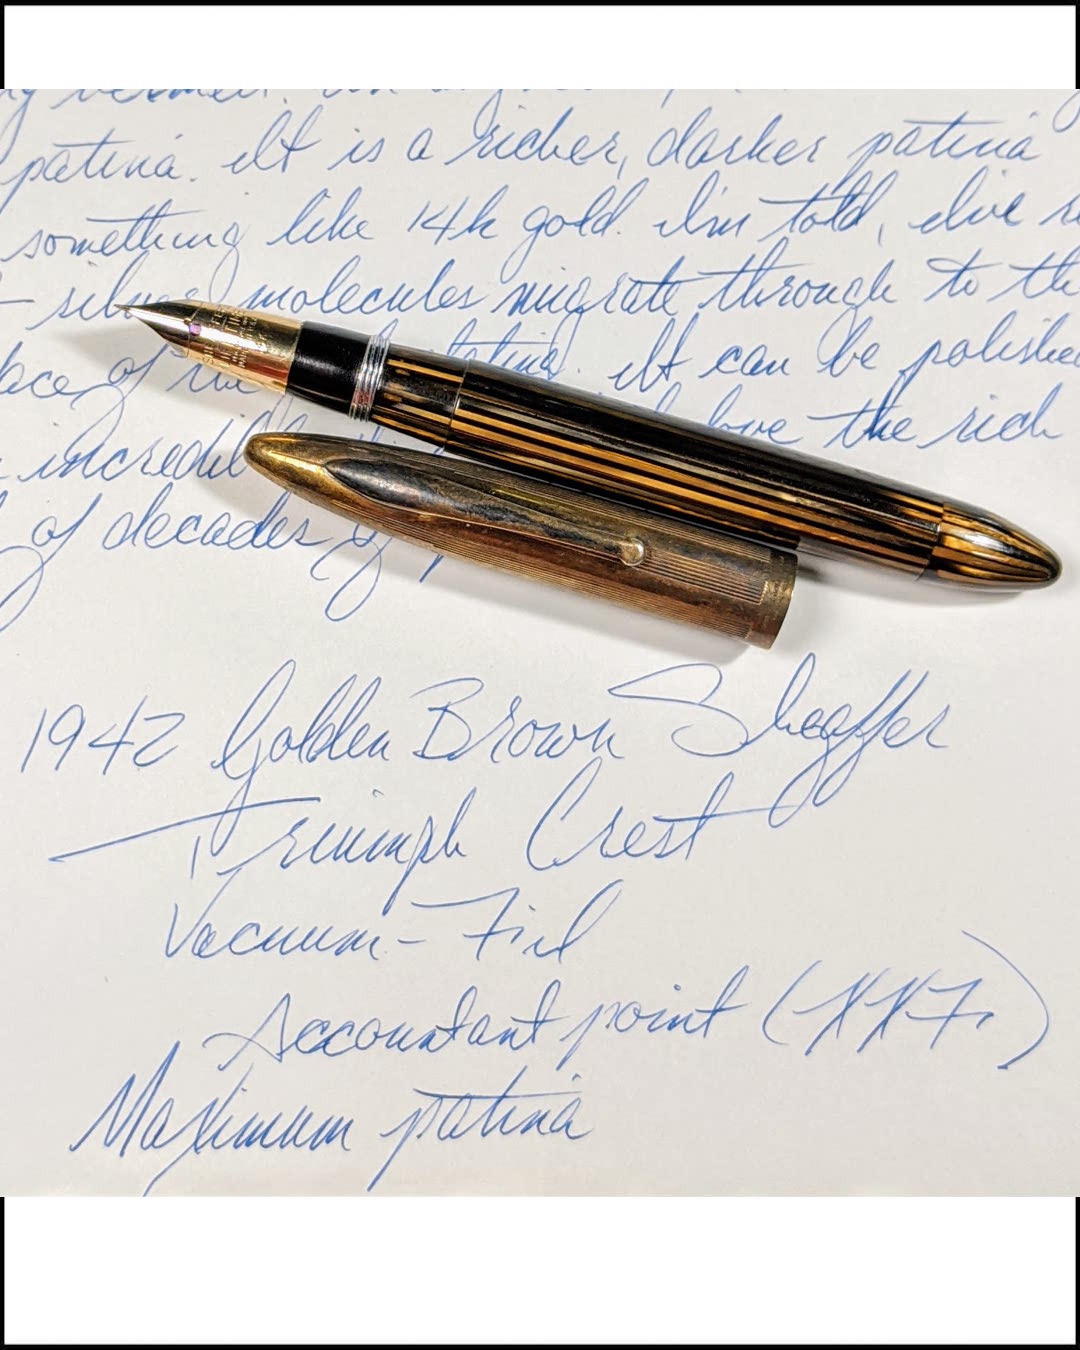 patina. It is a richer, darker patina
something like 14k gold. I'm told, I've
silver molecules migrate through to the
face of the plating. It can be polished
love the rich
incredible
of decades of
1942 Golden Brown Sheaffer
Triumph Crest
Vacuum-Fil
Accountant point (XXF)
Maximum patina